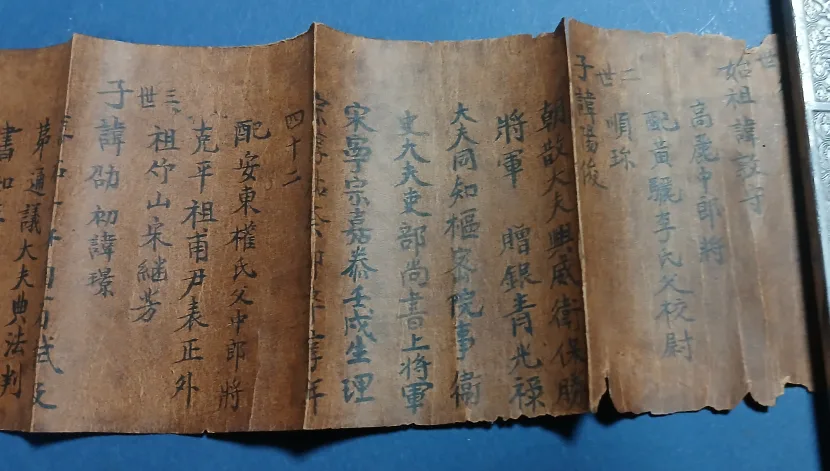 世
始祖諱敦守
高麗中郎將
配黃驪李氏父校尉
順珎
二世
子諱陽俊
朝散大夫興威衛保勝
將軍 贈銀青光祿
大夫同知樞密院事衛
史大夫吏部尚書上將軍
宋寧宗嘉泰壬戌生理
享年
四十二
配安東權氏父中郎將
克平祖甫尹表正外
祖竹山宋継芳
三世
子諱卲初諱璟
試文
第通議大夫典法判
書知